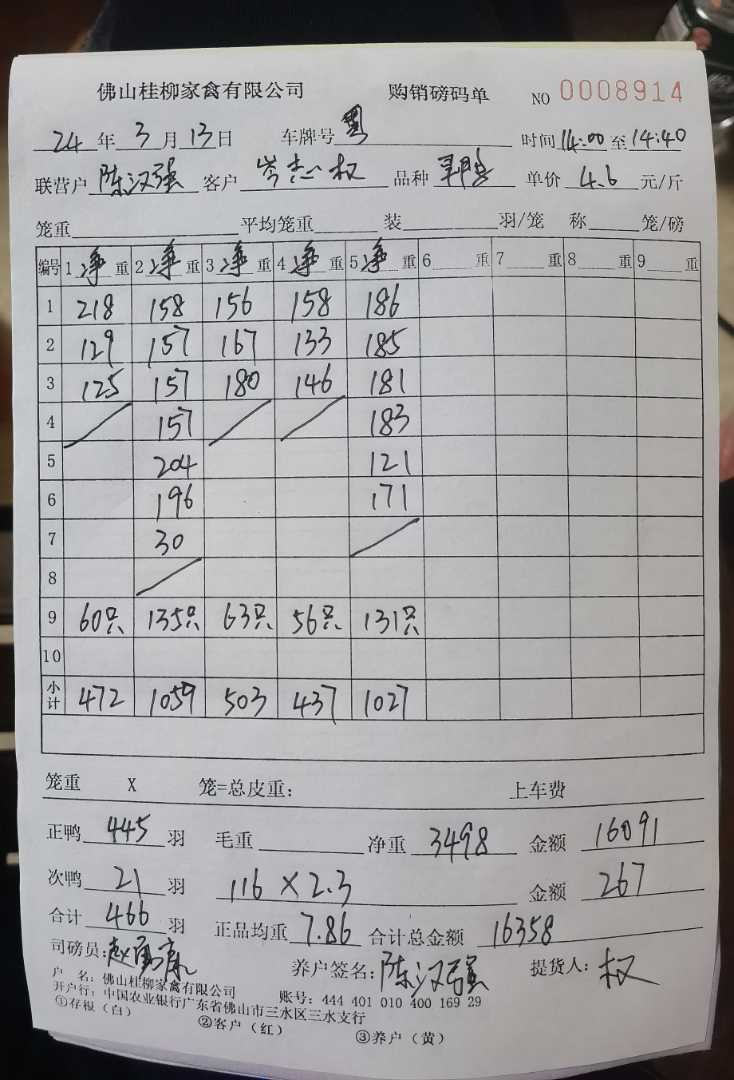 佛山桂柳家禽有限公司 购销磅码单 NO 0008914
24年3月13日 车牌号 粤 时间14:00至14:40
联营户 陈汉强 客户 岑志权 品种 单价 4.6 元/斤
笼重 平均笼重 装 羽/笼 称 笼/磅
编号 1净重 2净重 3净重 4净重 5净重 6 重 7 重 8 重 9 重
1 218 158 156 158 186
2 129 157 167 133 185
3 125 157 180 146 181
4 157 183
5 204 121
6 196 171
7 30
8
9 60只 135只 63只 56只 131只
10
小计 472 1059 503 437 1027
笼重 X 笼=总皮重: 上车费
正鸭 445 羽 毛重 净重 3498 金额 16091
次鸭 21 羽 116×2.3 金额 267
合计 466 羽 正品均重 7.86 合计总金额 16358
司磅员: 养户签名:陈汉强 提货人:权
户 名:佛山桂柳家禽有限公司 账号:444 401 010 400 169 29
开户行:中国农业银行广东省佛山市三水区三水支行
①存根(白) ②客户(红) ③养户(黄)